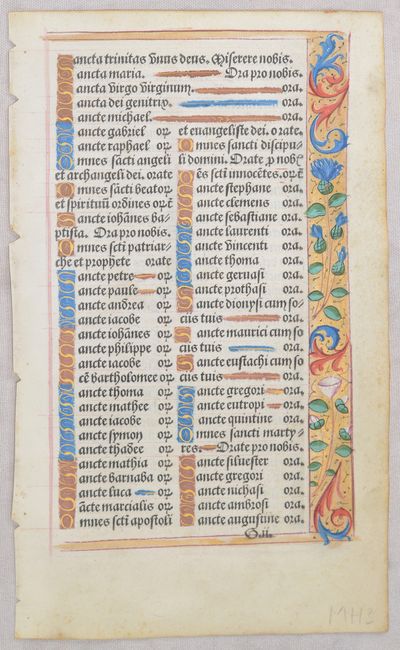 Sancta trinitas vnus deus. Miserere nobis.
Sancta maria. Ora pro nobis.
Sancta virgo virginum. ora.
Sancta dei genitrix. ora.
Sancte michael. ora.
Sancte gabriel oꝝ
Sancte raphael oꝝ
Omnes sācti angeli
et archangeli dei. orate
Omnes sācti beatoꝝ
et spirituū ordines oꝝt̄
Sancte iohānes ba-
ptista. Ora pro nobis.
Omnes scti patriar-
che et prophete orate
Sancte petre oꝝ
Sancte paule oꝝ
Sancte andrea oꝝ
Sancte iacobe oꝝ
Sancte iohānes oꝝ
Sancte philippe oꝝ
Sancte iacobe oꝝ
Scē bartholomee oꝝ
Sancte thoma oꝝ
Sancte mathee oꝝ
Sancte iacobe oꝝ
Sancte symon oꝝ
Sancte thadee oꝝ
Sancte mathia oꝝ
Sancte barnaba oꝝ
Sancte luca oꝝ
Sācte marcialis oꝝ
Omnes sctī apostoli
et euangeliste dei. orate.
Omnes sancti discipu-
li domini. Orate ꝓ nob
Oēs sctī innocētes. oꝝt̄
Sancte stephane ora.
Sancte clemens ora.
Sancte sebastiane ora.
Sancte laurenti ora.
Sancte vincenti ora.
Sancte thoma ora.
Sancte geruasi ora.
Sancte prothasi ora.
Sancte dionysi cum so-
ciis tuis ora.
Sancte maurici cum so
ciis tuis ora.
Sancte eustachi cum so
ciis tuis ora.
Sancte gregori ora.
Sancte eutropi ora.
Sancte quintine ora.
Omnes sancti marty-
res. Orate pro nobis.
Sancte siluester ora.
Sancte gregori ora.
Sancte nichasi ora.
Sancte ambrosi ora.
Sancte augustine ora.
G.ii.